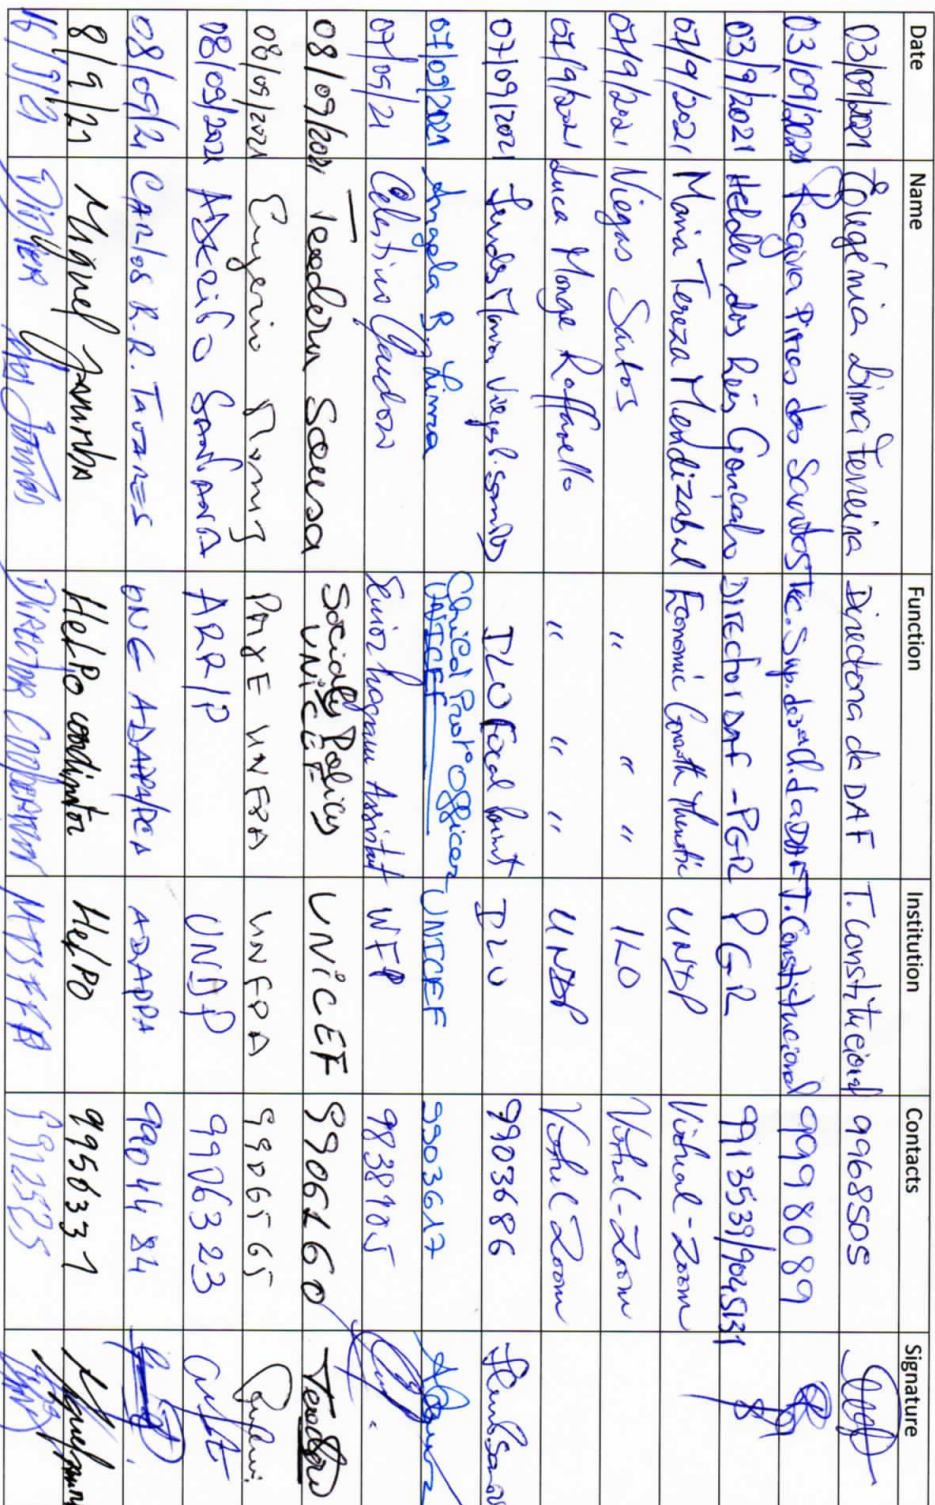 Date Name Function Institution Contacts Signature
03/09/2021 Eugénia Lima Ferreira Directora da DAF T. Constitucional 9968505
03/09/2021 Regina Pires dos Santos Tec. Sup. da DAF T. Constitucional 9998089
03/9/2021 Helder dos Reis Goncalo Director DAF - PGR PGR 9913539/9045131
07/9/2021 Maria Tereza Mendizabal Economic Growth Thematic UNDP Virtual-Zoom
07/9/2021 Niegas Santos " " " ILO Virtual-Zoom
07/9/2021 Luca Monge Roffarello " " " UNDP Virtual-Zoom
07/09/2021 ILO Focal Point ILO 9903686
07/09/2021 Angela B. Lima Child Prot. Officer UNICEF UNICEF 9903617
07/09/21 Celestino Cardoso Senior Program Assistant WFP 9838905
08/09/2021 Teodora Sousa Social Policy UNICEF UNICEF 9906160
08/09/2021 Eugenio UNFPA UNFPA 9906565
08/09/2021 Aderito Santana ARR/P UNDP 9906323
08/09/21 Carlos R.R. Tavares ONG ADAPPA ADAPPA 9904484
8/9/21 Miguel Jamba HelPo coordinator HelPo 9956331
16/9/21 9912525